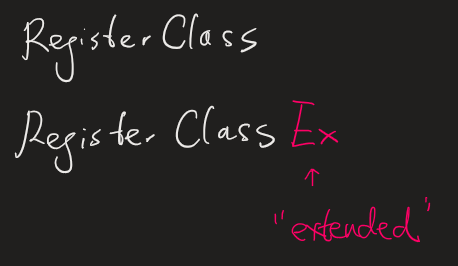 RegisterClass
Register Class Ex
↑
"extended"